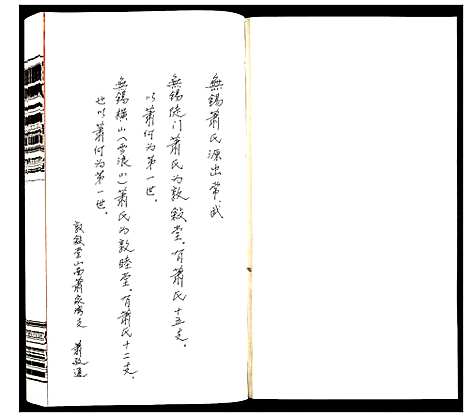 無錫蕭氏源出常武
無錫陡门蕭氏為敦敘堂，有蕭氏十五支，
以蕭何为第一世，
無錫横山（雪浪山）蕭氏为敦睦堂，有蕭氏十二支，
也以蕭何为第一世，
敦敘堂山西蕭家 支 蕭